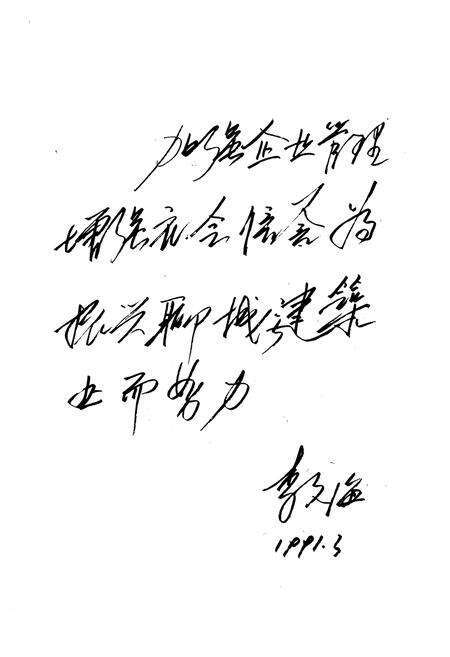 加强企业管理
增强社会信誉为
振兴聊城建築
业而努力
李文海
1991.3